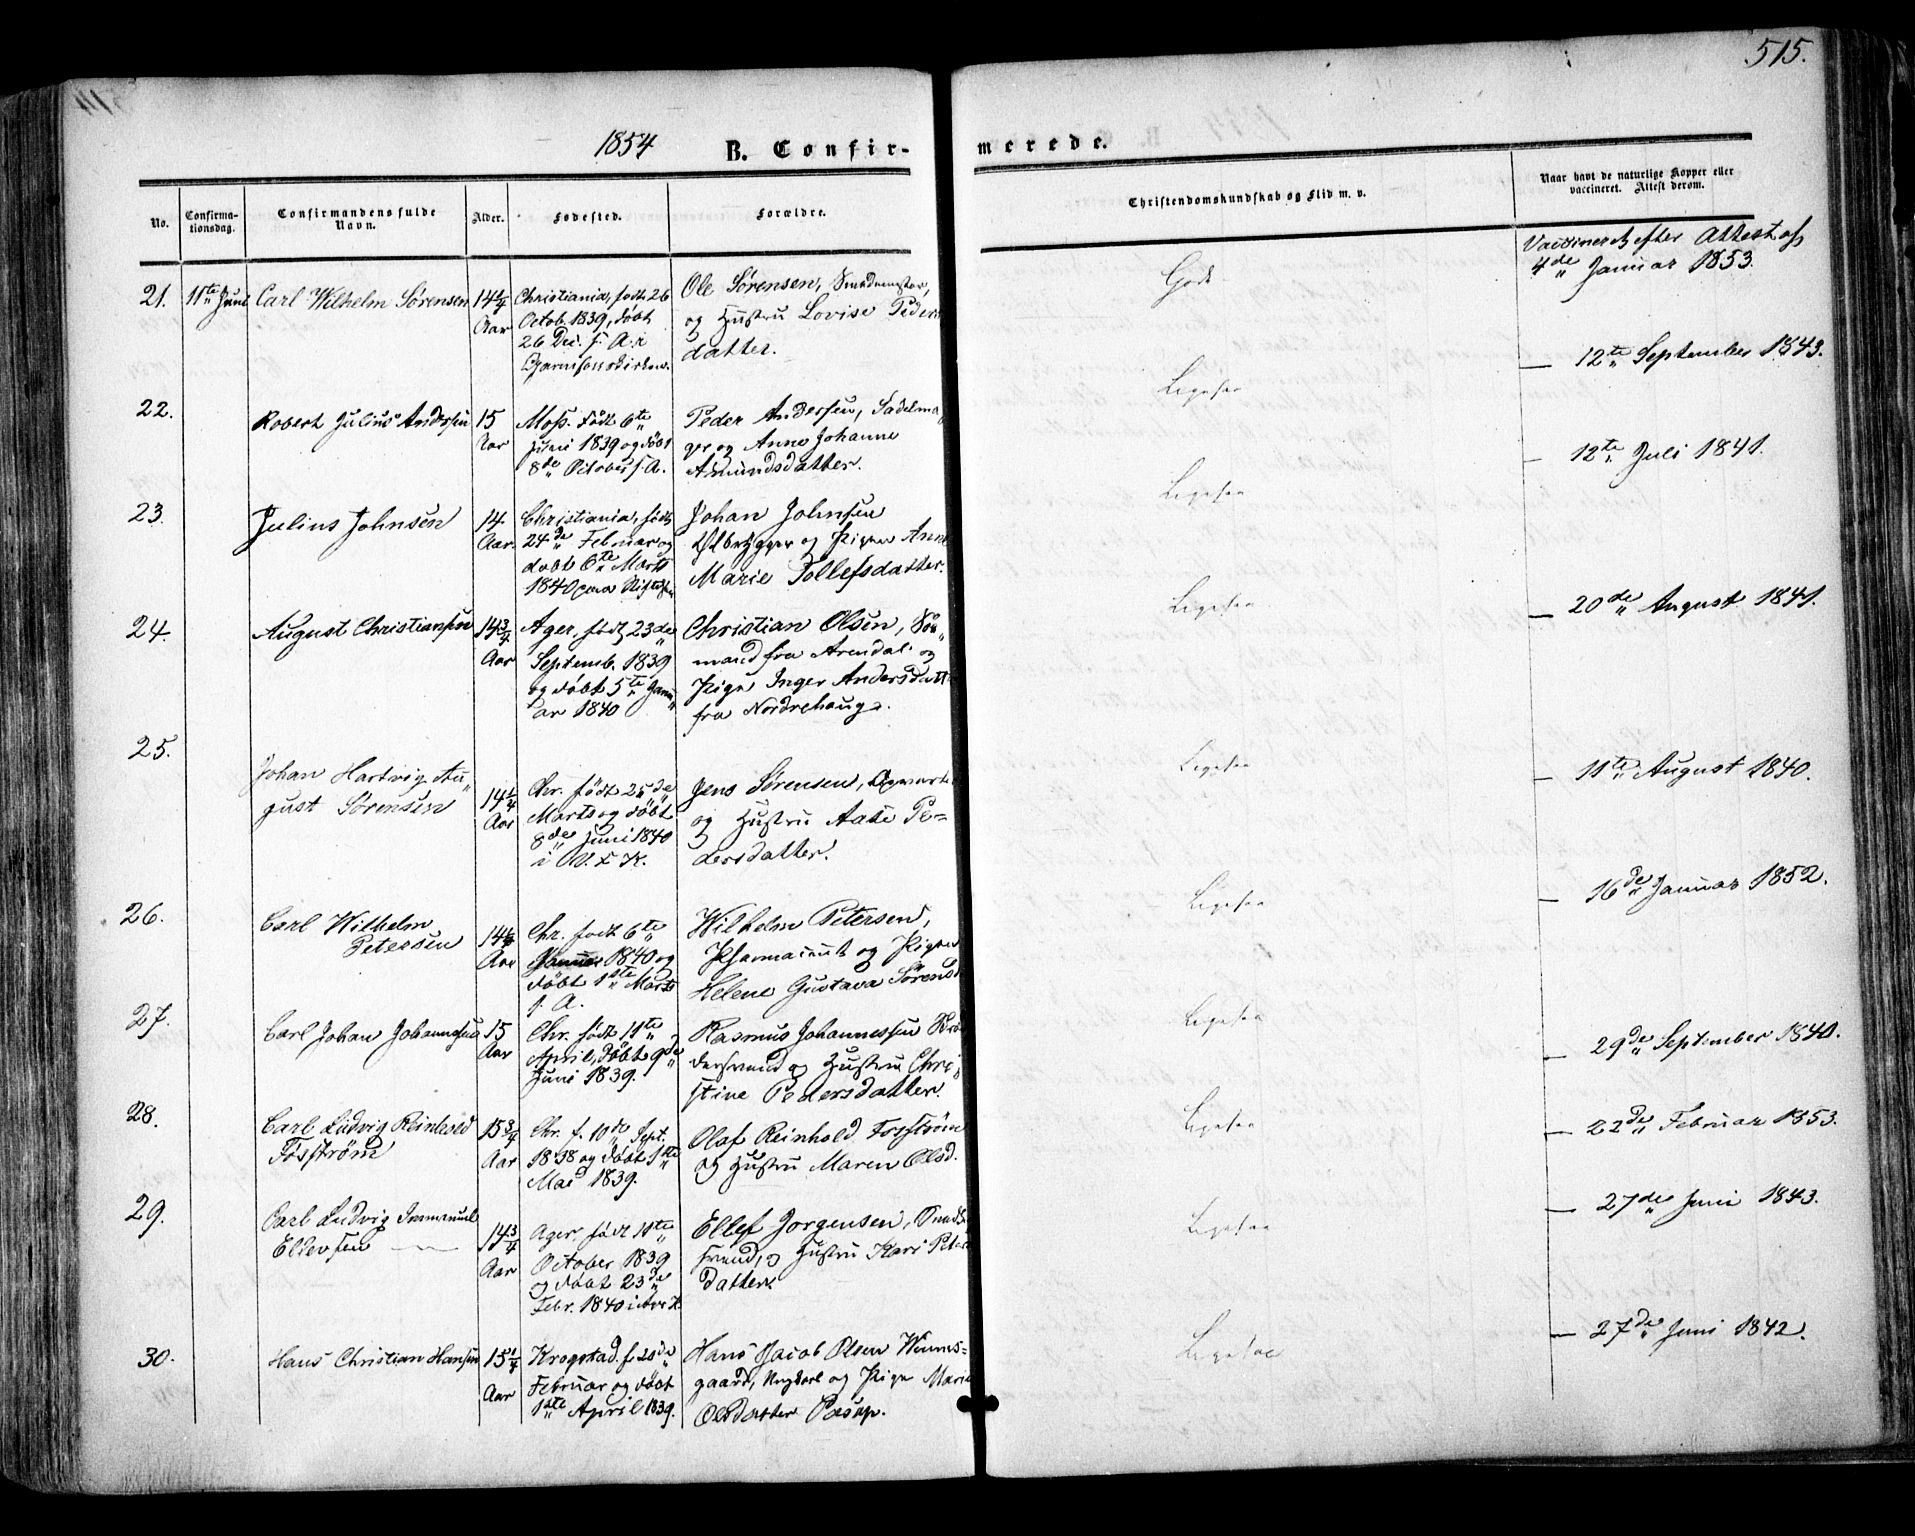 515.
1854
B. Confir-
merede.
No.
Confirma-
tionsdag.
Confirmandens fulde
Navn.
Alder.
Fødested.
Forældre.
Christendomskundskab og Flid m. v.
Naar havt de naturlige Kopper eller
vaccineret. Attest derom.
21.
11te Juni
Carl Wilhelm Sørensen
14 1/4
Aar
Christiania, født 26
Octob. 1839, døbt
26 Dec. s. A. i
Ole Sørensen,
og Hustru Lovise Peders
datter.
Godt
Vaccineret efter Attest af
4de Januar 1853.
22.
Robert Julius Andersen
15
Aar
Moss. født 6te
Juni 1839 og døbt
8de October s. A.
Peder Andersen, Sadelma
ger og Anne Johanne
Amundsdatter.
Ligesaa
— 12te September 1843.
23.
Julius Johnsen
14
Aar.
Christiania, født
24de Februar og
døbt 6te Marts
1840
Johan Johnsen
Ølbrygger og Pigen Anne
Marie Tollefsdatter.
Ligesaa
— 12te Juli 1841.
24.
August Christiansen
14 3/4
Aar
Ager, født 23de
Septemb. 1839
og døbt 5te Janu
ar 1840
Christian Olsen, Sø
mand fra Arendal og
Pige Inger Andersdatt
fra Nordrehaug.
Ligesaa
— 20de August 1841.
25.
Johan Hartvig Au
gust Sørensen
14 1/4
Aar
Chr. født 25de
Marts og døbt
8de Juni 1840
i V. F. K.
Jens Sørensen,
og Hustru Pe-
dersdatter.
Ligesaa
— 11te August 1840.
26.
Carl Wilhelm
Petersen
Aar
Chr. født 6te
Januar 1840 og
døbt 1ste Marts
s. A.
Wilhelm Petersen,
Pharmaceut og Pigen
Helene Gustava Sørensd
Ligesaa
— 16de Januar 1852.
27.
Carl Johan Johannesen
15
Aar
Chr. født 11te
April, døbt 9de
Juni 1839.
Rasmus Johannessen
og Hustru Chri
stine Pedersdatter.
Ligesaa
— 29de September 1840.
28.
Carl Ludvig Reinhold
Fosstrøm
15 3/4
Aar
Chr. f. 10de Sept.
1838 og døbt 1ste
Mai 1839.
Olaf Reinhold Fosstrøm
og Hustru Maren Olsd.
Ligesaa
— 22de Februar 1853.
29.
Carl Ludvig Immanuel
14 3/4
Aar
Ager. født 11te
October 1839
og døbt 23de
Febr. 1840
Ellef Jørgensen,
og Hustru Kari Peters
datter
Ligesaa
— 27de Juni 1843.
30.
Hans Christian Hansen
15 1/4
Aar
Krogstad. f. 28de
Februar og døbt
1ste April 1839.
Hans Jacob Olsen
gaard, Ungkarl og Pige Marie
Olsdatter
Ligesaa
— 27de Juni 1842.